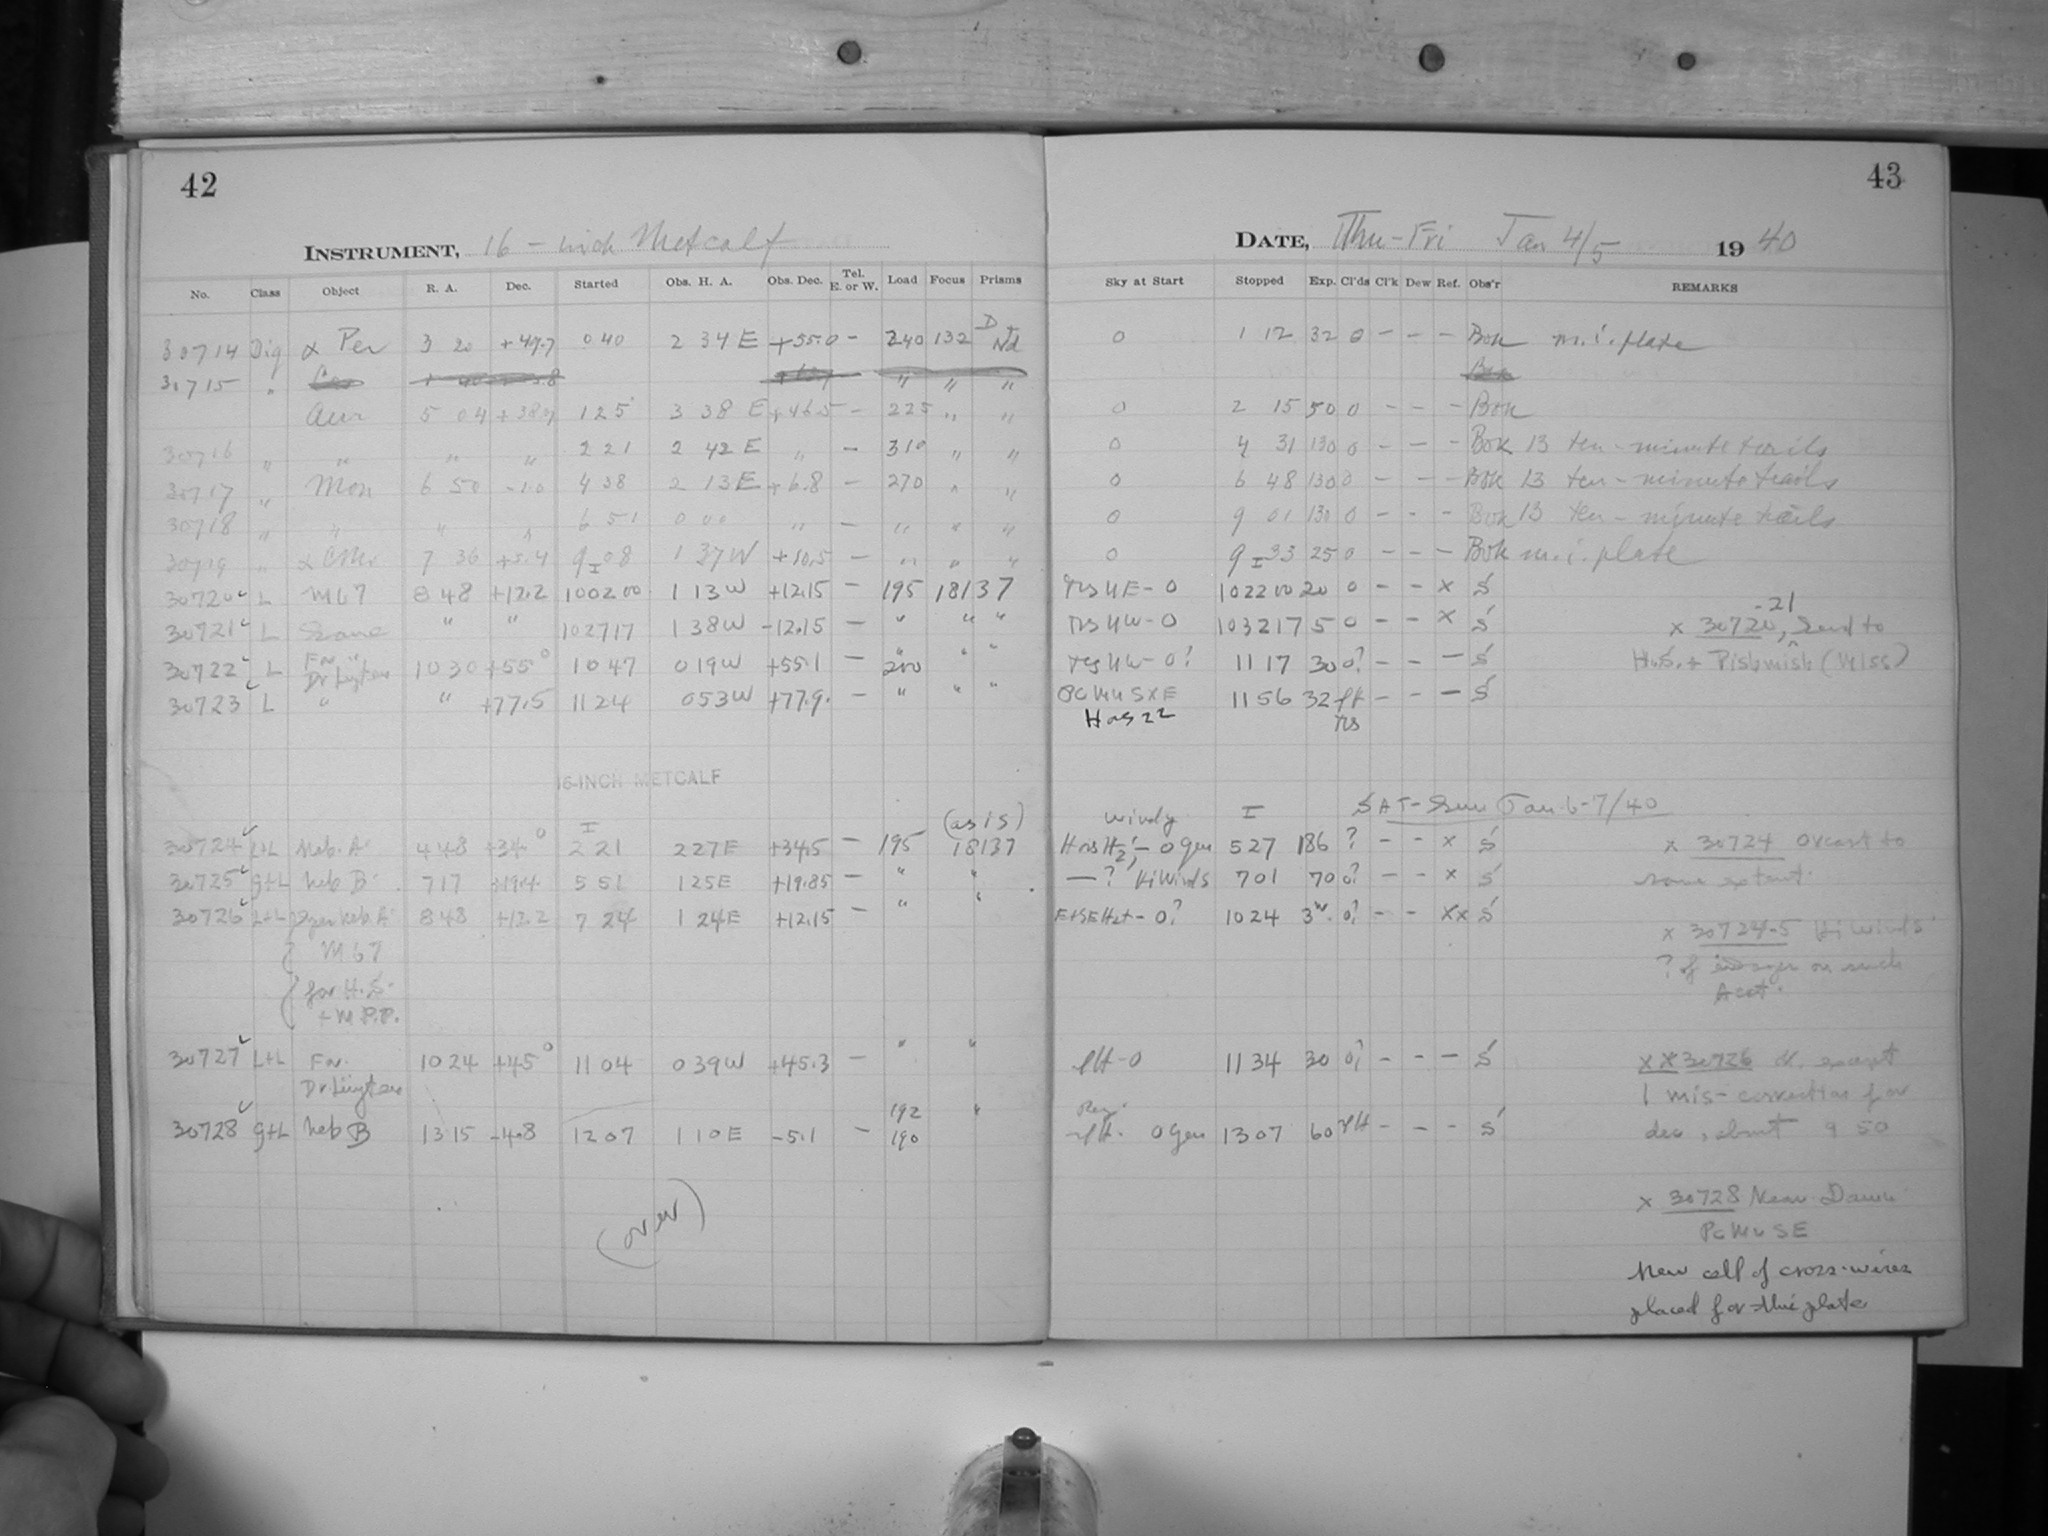 42
INSTRUMENT, 16-inch Metcalf
No. Class Object R. A. Dec. Started Obs. H. A. Obs. Dec. Tel. E. or W. Load Focus Prisms
30714 Dig α Per 3 20 +49.7 0 40 2 34 E +55.0 - 240 132 D Nd
30715 " " " "
Aur 5 04 +38.9 1 25 3 38 E +46.5 - 225 " "
30716 " " " " 2 21 2 42 E " - 310 " "
30717 " Mon 6 50 -1.0 4 38 2 13 E +6.8 - 270 " "
30718 " " " " 6 51 0 00 " - " " "
30719 " α CMi 7 36 +5.4 9 08 1 37 W +10.5 - " " "
30720 L M67 8 48 +12.2 10 02 00 1 13 W +12.15 - 195 18137
30721 L Same " " 10 27 17 1 38 W -12.15 - " " "
30722 L For Dr Luyten 10 30 +55° 10 47 0 19 W +55.1 - 200 " "
30723 L " " +77.5 11 24 0 53 W +77.9 - " " "
16-INCH METCALF
(as is)
30724 L+L Neb. A 4 48 +34° 2 21 2 27 E +34.5 - 195 18137
30725 G+L Neb B 7 17 +19.4 5 51 1 25 E +19.85 - " "
30726 L+L Neb. A 8 48 +12.2 7 24 1 24 E +12.15 - " "
M67
for H.S.
30727 L+L For 10 24 +45° 11 04 0 39 W +45.3 - " "
Dr Luyten
192 "
30728 G+L Neb B 13 15 -4.8 12 07 1 10 E -5.1 - 190
(over)
43
DATE, Thu-Fri Jan 4/5 1940
Sky at Start Stopped Exp. Cl'ds Cl'k Dew Ref. Obs'r REMARKS
0 1 12 32 0 - - - Bok m.i. plate
0 2 15 50 0 - - - Bok
0 4 31 130 0 - - - Bok 13 ten-minute trails
0 6 48 130 0 - - - Bok 13 ten-minute trails
0 9 01 130 0 - - - Bok 13 ten-minute trails
0 9 33 25 0 - - - Bok m.i. plate
10 22 00 20 0 - - x S
-21
10 32 17 5 0 - - x S x 30720, Send to
11 17 30 0? - - - S H.S. + Pishmish (Miss)
11 56 32 - - - S
SAT-Sun Jan 6-7/40
windy
0 Gen 5 27 186 ? - - x S x 30724 Ovcast to
-? Hi Winds 7 01 70 0? - - x S some extent.
0? 10 24 0? - - xx S
x 30724-5 Hi Winds
? of images on such
Acct.
-0 11 34 30 0? - - - S xx 30726 ok. except
1 mis-correction for
0 Gen 13 07 60 - - - S dec, about 9 50
x 30728 Near Dawn
PcMu SE
New cell of cross-wires
placed for this plate